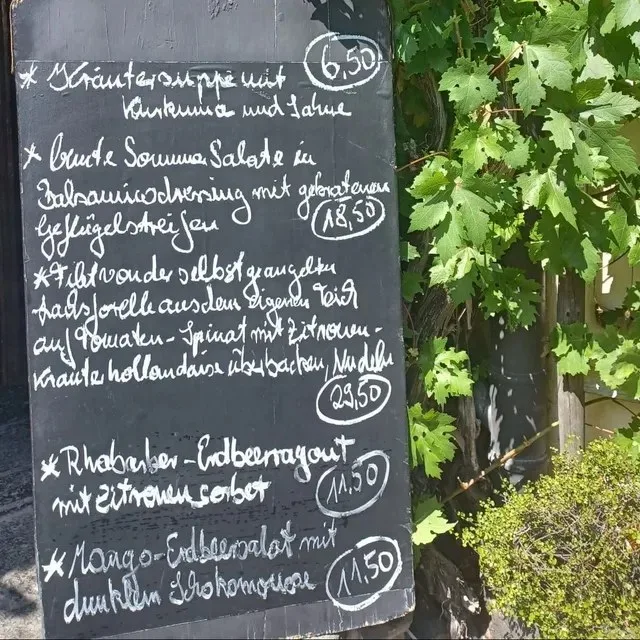 6,50
* Kräutersuppe mit
Kurkuma und Sahne
* bunte Sommer Salate in
Balsamicodressing mit gebratenen
Geflügelstreifen 18,50
* Filet von der selbst geangelten
Lachsforelle aus dem eigenen Teich
auf Tomaten-Spinat mit Zitronen-
kräuterhollandaise überbacken, Nudeln
29,50
* Rhabarber-Erdbeerragout
mit Zitronensorbet 11,50
* Mango-Erdbeersalat mit
dunklem Schokomousse 11,50